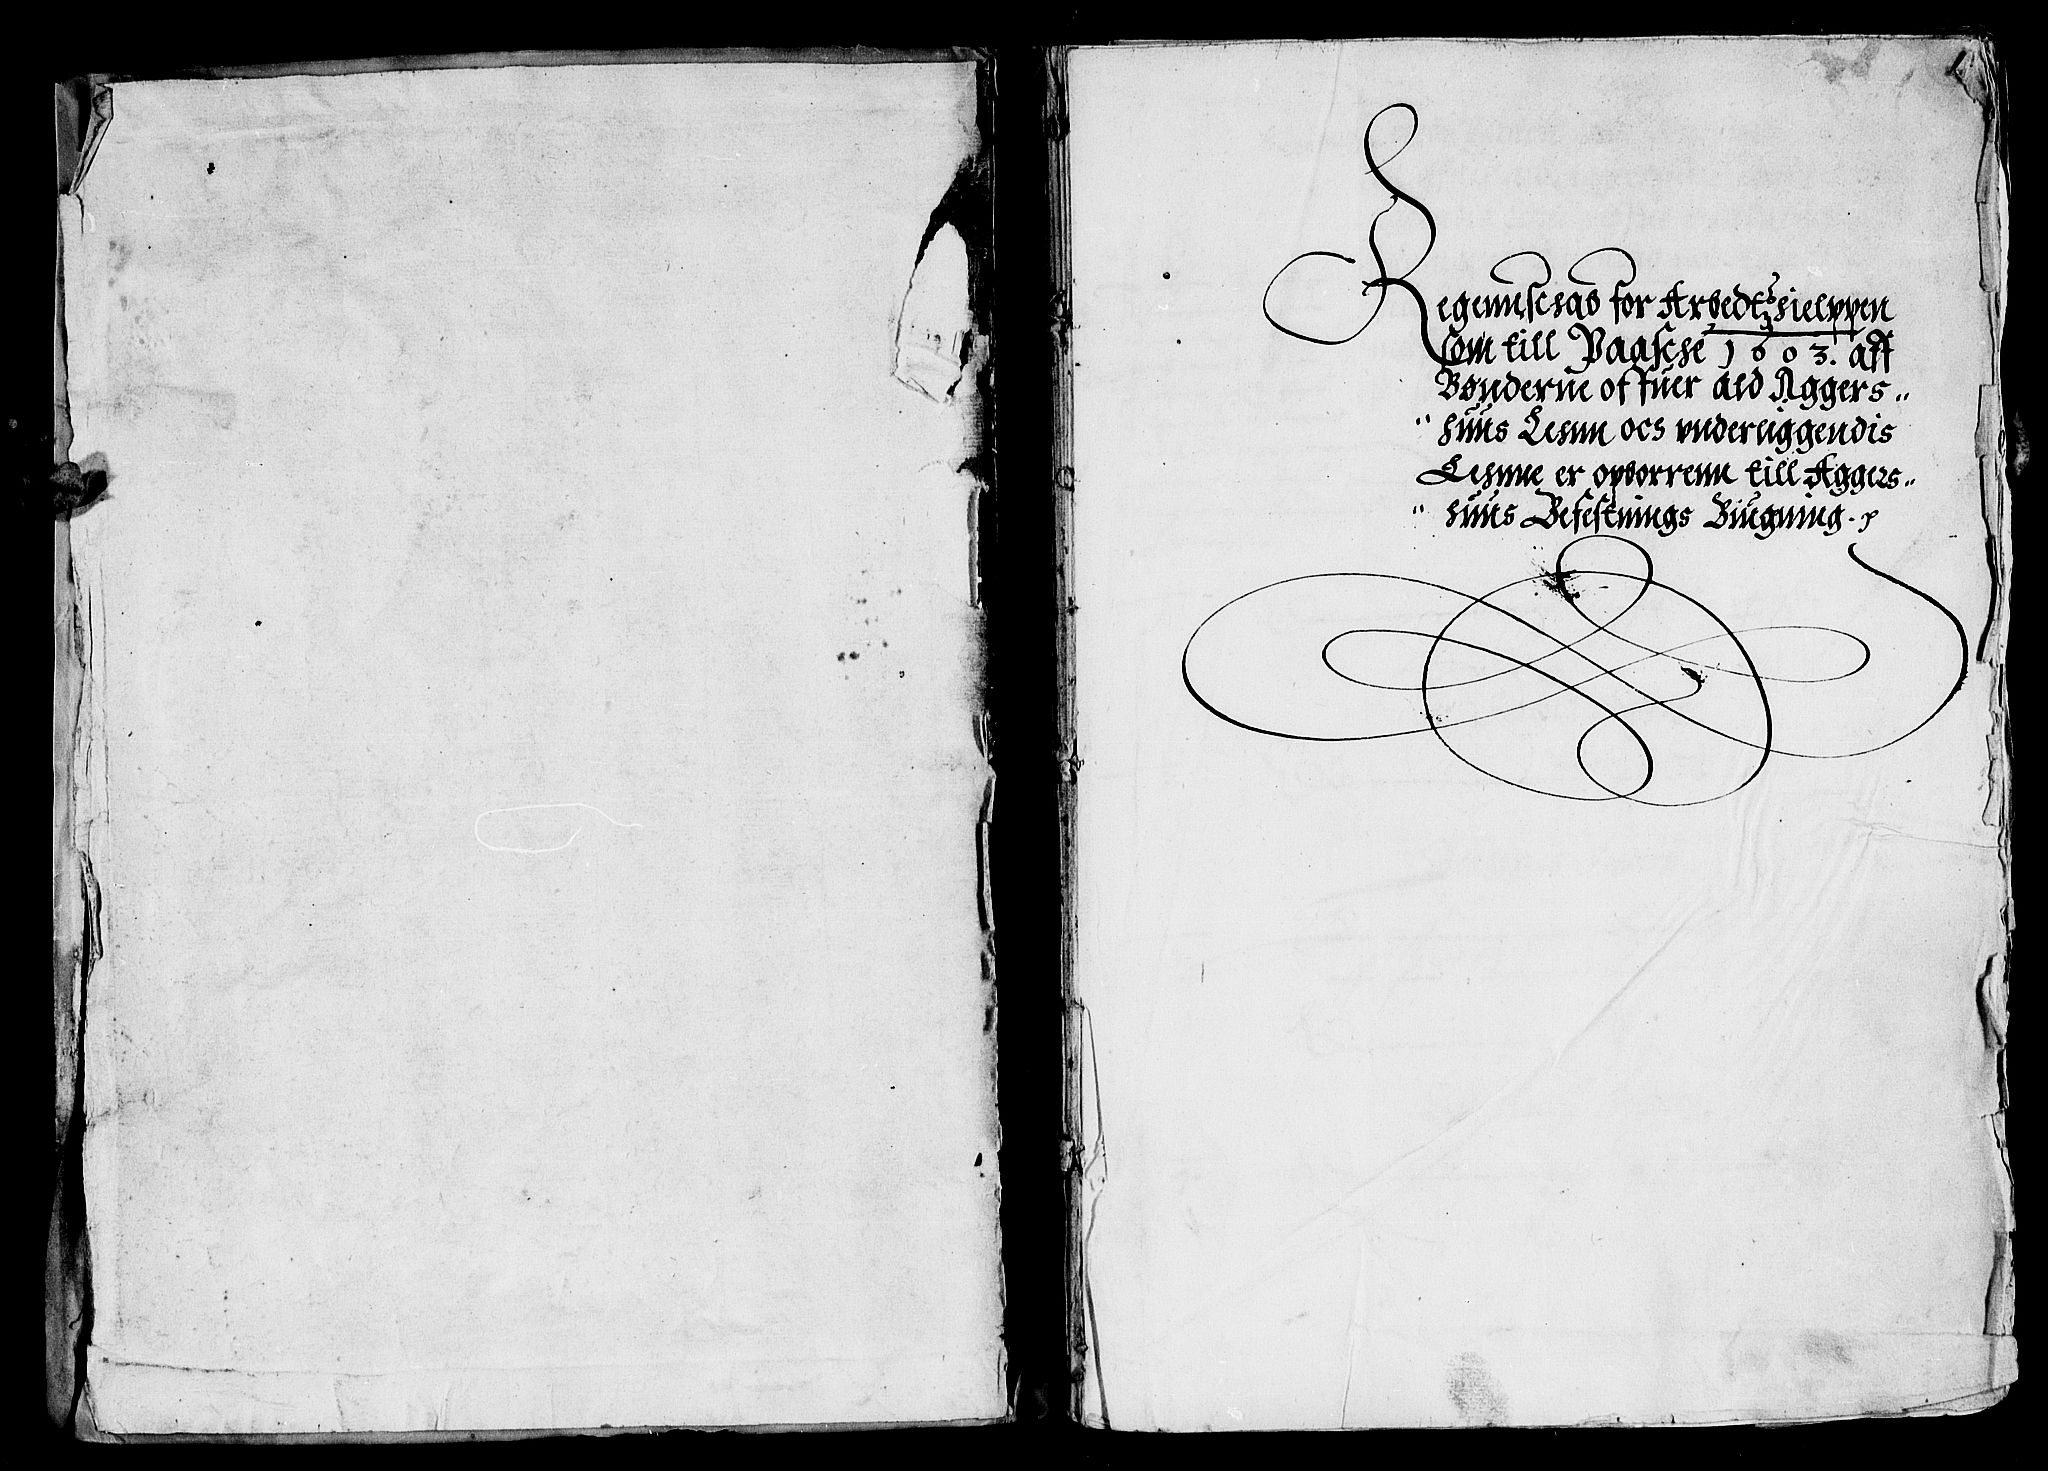 1
Regennschab for Arbedtzhielppen
som till Paasche 1603. aff
Bønderne offuer ald Aggers„
„huus Lehnn och vnderliggendis
Lehnne er opborrenn till Aggers„
„huus Befestnings Biugning.